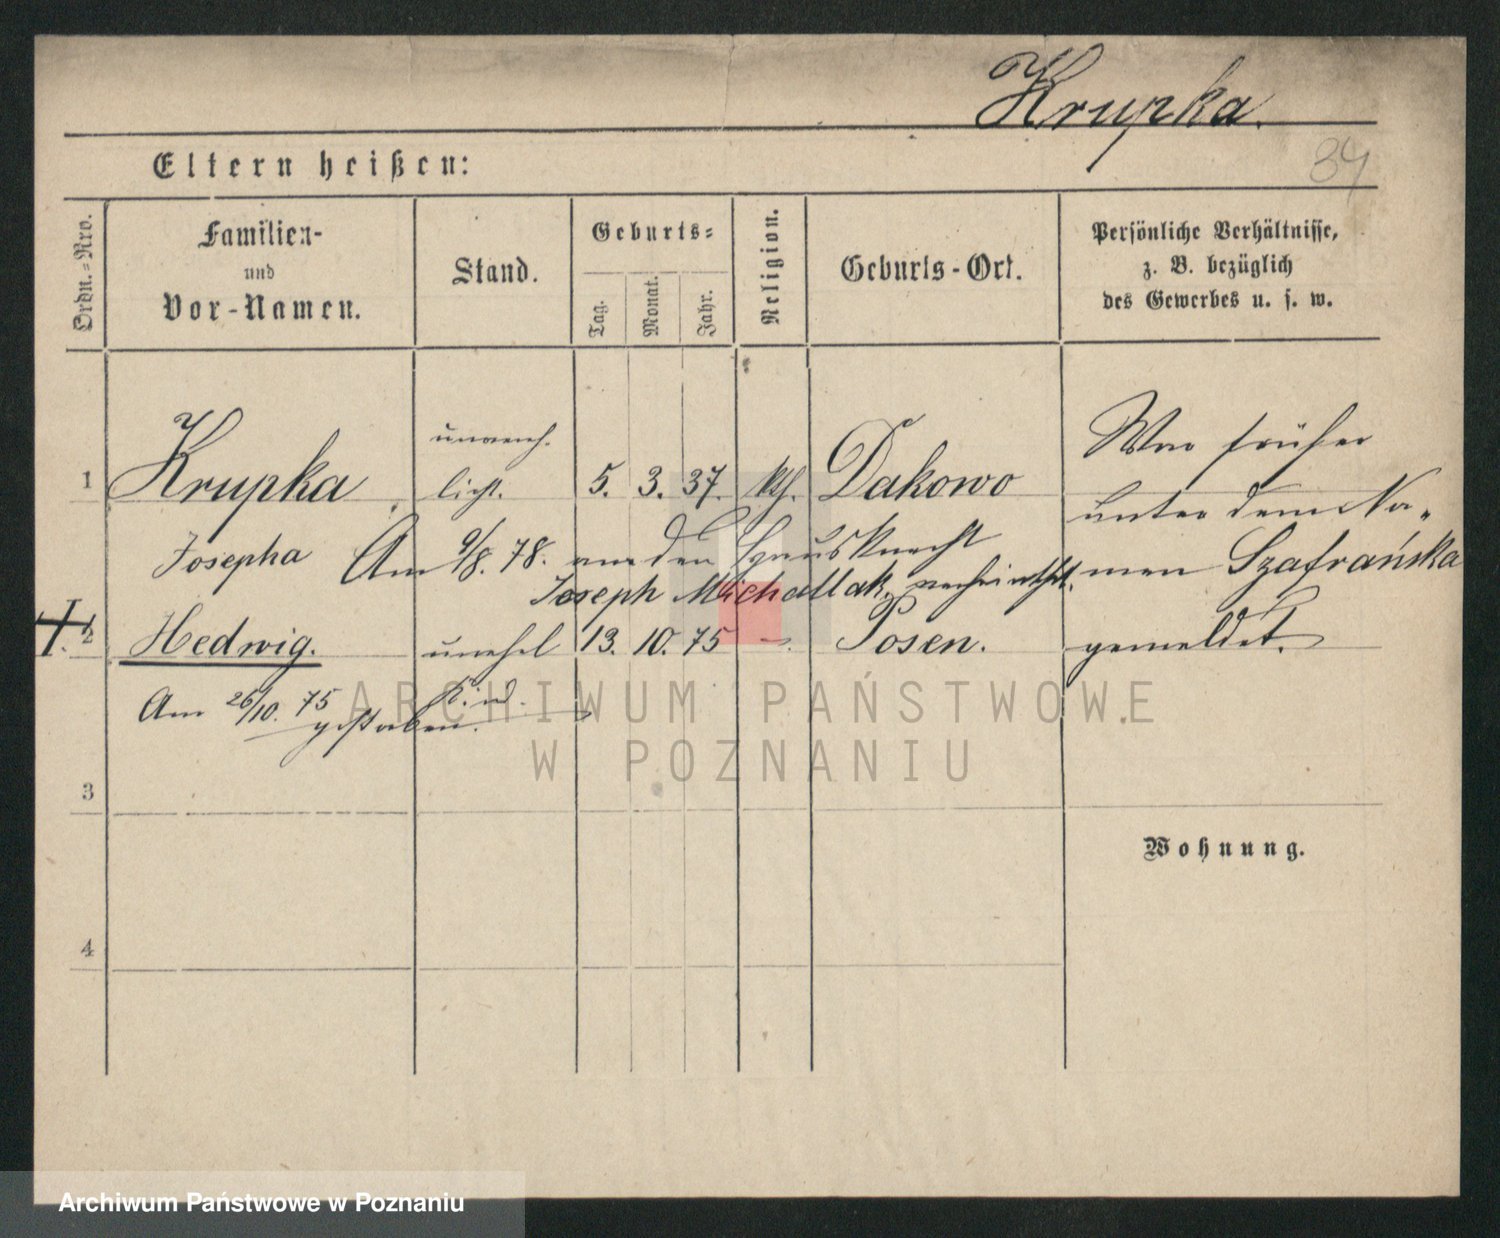 Krupka.
34
Eltern heißen:
Ordn.-Nro.
Familien-
und
Vor-Namen.
Stand.
Geburts-
Tag.
Monat.
Jahr.
Religion.
Geburts-Ort.
Persönliche Verhältnisse,
z. B. bezüglich
des Gewerbes u. s. w.
1 Krupka
Josepha
unvereh-
licht.
5. 3. 37. kth. Dakowo
War früher
unter dem Na-
men Szafrańska
gemeldet.
Am 9/8. 78. an den Hausknecht
Joseph Michallak verheirathet.
2 Hedwig. unehel 13. 10. 75 Posen.
Kind.
Am 26/10. 75
gestorben.
3
Wohnung.
4
ARCHIWUM PAŃSTWOWE
W POZNANIU
Archiwum Państwowe w Poznaniu